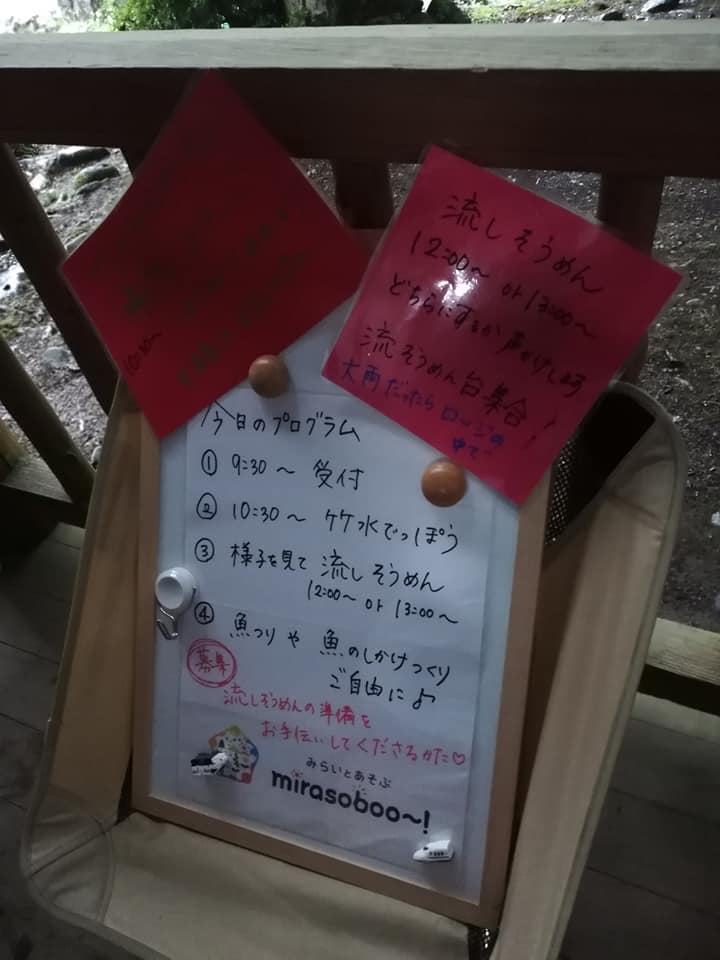 10:30～
流しそうめん
12:00～ or 13:00～
どちらにするか声かけします
流しそうめん台集合！
大雨だったらロッジの
中で
今日のプログラム
① 9:30～ 受付
② 10:30～ 竹水でっぽう
③ 様子を見て 流しそうめん
12:00～ or 13:00～
④ 魚つりや 魚のしかけつくり
ご自由に♪
募集
流しそうめんの準備を
お手伝いしてくださるかた♡
みらいとあそぶ
mirasoboo～!